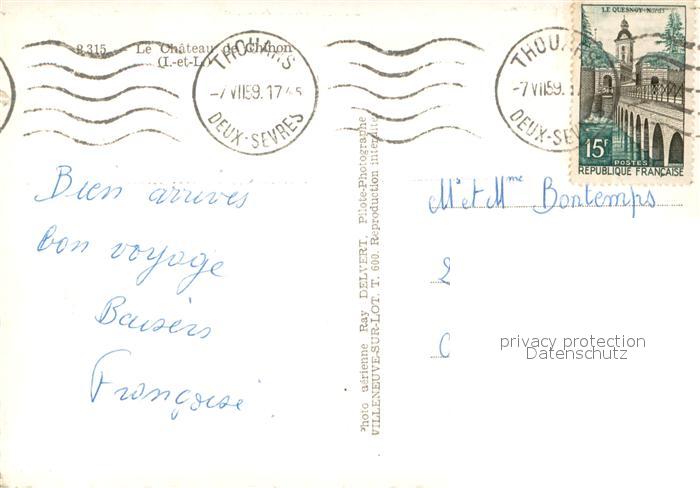 8.315 Le Château de Chinon
(I.-et-L.)
THOUARS
-7 VII59. 17 45
DEUX-SEVRES
THOUARS
-7 VII59. 17
DEUX-SEV
LE QUESNOY-Nord
15F
POSTES
REPUBLIQUE FRANÇAISE
Bien arrivés
bon voyage
Baisers
Françoise
Photo aérienne Ray DELVERT, Pilote-Photographe
VILLENEUVE-SUR-LOT. T. 600. Reproduction interdite
Mr et Mme Bontemps
2
C
privacy protection
Datenschutz